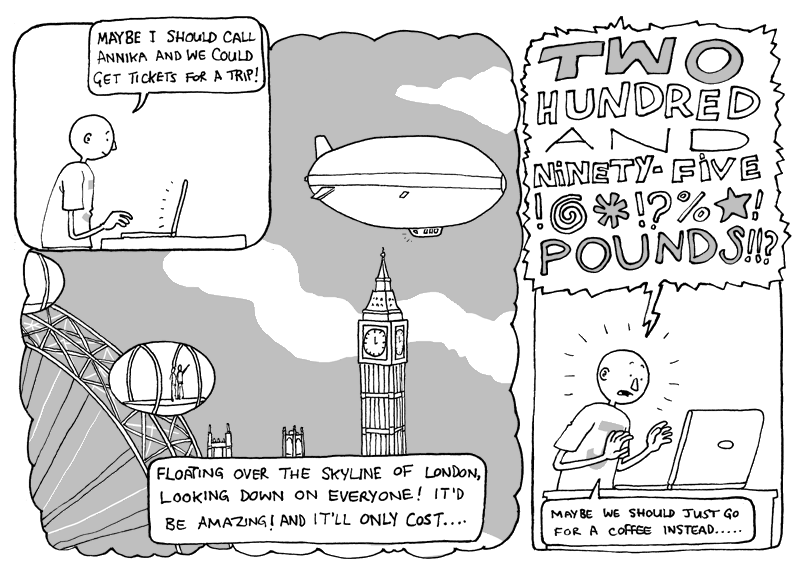 MAYBE I SHOULD CALL
ANNIKA AND WE COULD
GET TICKETS FOR A TRIP!
FLOATING OVER THE SKYLINE OF LONDON,
LOOKING DOWN ON EVERYONE! IT'D
BE AMAZING! AND IT'LL ONLY COST....
TWO
HUNDRED
AND
NINETY-FIVE
!@*!?%★!
POUNDS!!!?
MAYBE WE SHOULD JUST GO
FOR A COFFEE INSTEAD.....